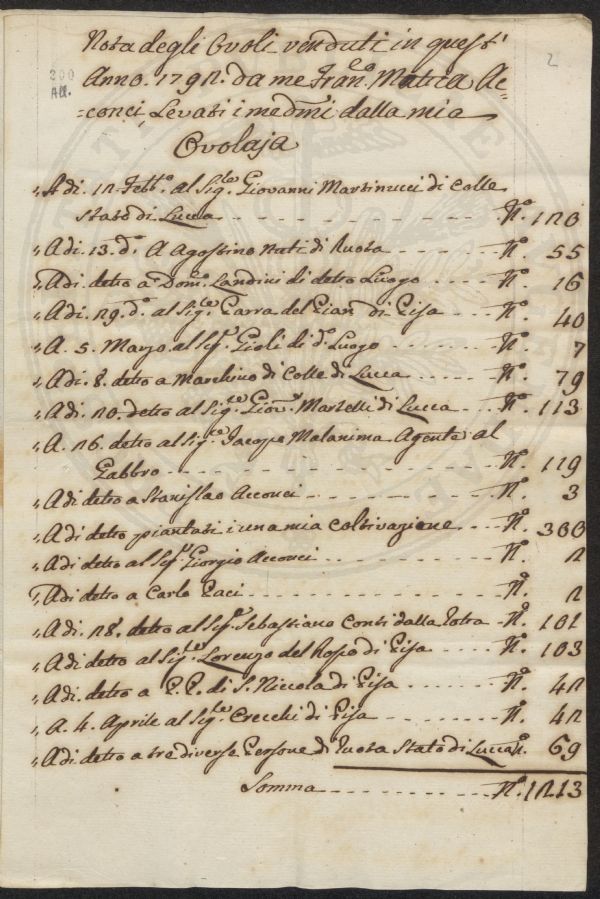 2
200
All.
Nota degli Ovoli venduti in quest'
Anno. 1792. da me Fran.co Mattia Ac=
=conci Levati i med.mi dalla mia
Ovolaja
Adi. 12. Febb.o al Sig.re Giovanni Martinucci di Colle
Stato di Lucca - - - N.o 120
Adi. 13. d.o A Agostino Nati di Ruota - - - N.o 55
Adi. detto a Dom.co Landini di detto Luogo - - - N.o 16
Adi. 29. d.o al Sig.re Parra del Pian di Pisa - - - N.o 40
A. 5. Marzo al Sig.r Gioli di d.o Luogo - - - N.o 7
Adi. 8. detto a Marchino di Colle di Lucca - - - N.o 79
Adi. 20. detto al Sig.re Giov. Martelli di Lucca - - - N.o 113
A. 26. detto al Sig.re Jacopo Malanima Agente al
Gabbro - - - N.o 119
Adi detto a Stanislao Acconci - - - N.o 3
Adi detto piantati i una mia Coltivazione - - - N.o 300
Adi detto al Sig.r Giorgio Acconci - - - N.o 2
Adi detto a Carlo Paci - - - N.o 2
Adi. 28. detto al Sig.re Sebastiano Conti dalla Potra - N.o 101
Adi detto al Sig.re Lorenzo del Rosso di Pisa - - - N.o 103
Adi. detto a P.P. di S. Niccola di Pisa - - - N.o 42
A. 4. Aprile al Sig.re Crecchi di Pisa - - - N.o 42
Adi detto a tre diverse Persone di Ruota Stato di Lucca N.o 69
Somma - - - N.o 1213